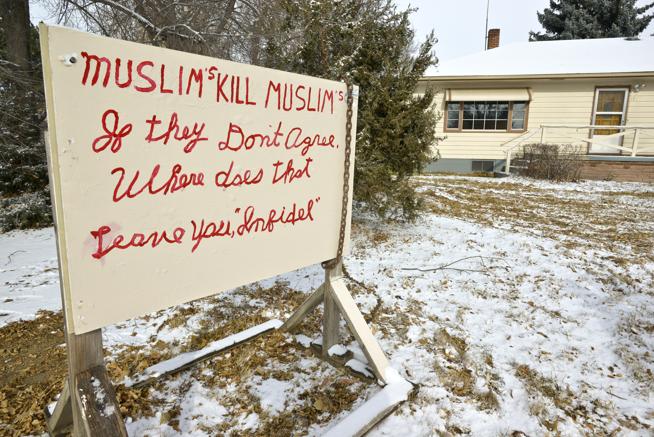 MUSLIM'S KILL MUSLIM'S
If they Don't Agree,
Where does that
Leave You, "Infidel"